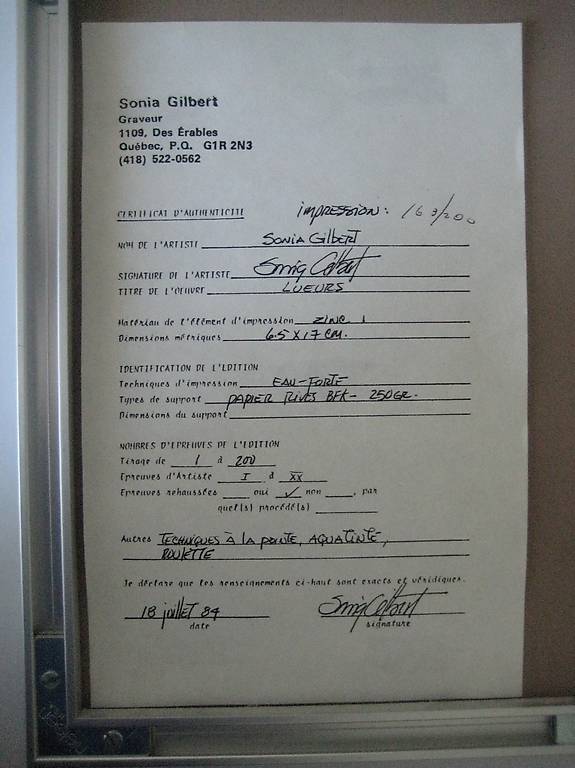 Sonia Gilbert
Graveur
1109, Des Érables
Québec, P.Q. G1R 2N3
(418) 522-0562
CERTIFICAT D'AUTHENTICITE IMPRESSION: 163/200
NOM DE L'ARTISTE SONIA GILBERT
SIGNATURE DE L'ARTISTE Sonia Gilbert
TITRE DE L'OEUVRE LUEURS
Matériau de l'élément d'impression ZINC
Dimensions métriques 6.5 X 17 cm.
IDENTIFICATION DE L'EDITION
Techniques d'impression EAU-FORTE
Types de support PAPIER RIVES BFK - 250GR.
Dimensions du support
NOMBRES D'EPREUVES DE L'EDITION
Tirage de 1 à 200
Epreuves d'Artiste I à XX
Epreuves rehaussées oui ✓ non , par
quel(s) procédé(s)
Autres TECHNIQUES À LA POINTE, AQUATINTE,
ROULETTE
Je déclare que les renseignements ci-haut sont exacts et véridiques.
18 juillet 84 Sonia Gilbert
date signature